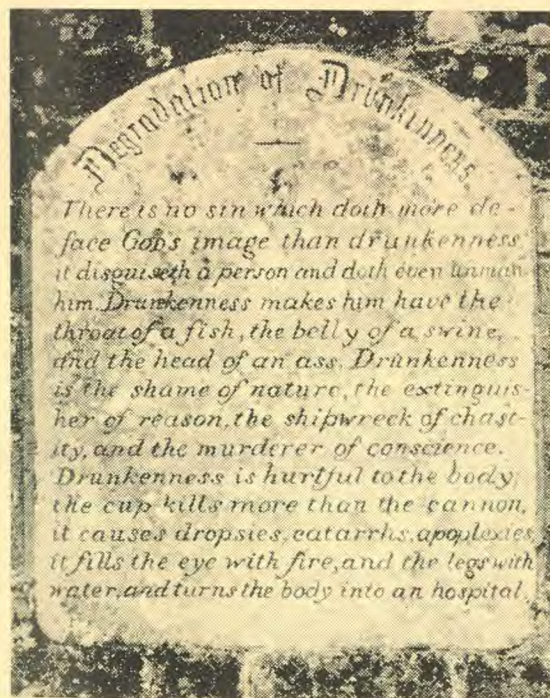 Degradation of Drunkenness.
There is no sin which doth more de-
face GODS image than drunkenness,
it disguiseth a person and doth even unman
him. Drunkenness makes him have the
throat of a fish, the belly of a swine,
and the head of an ass. Drunkenness
is the shame of nature, the extinguis-
her of reason, the shipwreck of chast-
ity, and the murderer of conscience.
Drunkenness is hurtful to the body;
the cup kills more than the cannon,
it causes dropsies, catarrhs, apoplexies,
it fills the eye with fire, and the legs with
water, and turns the body into an hospital.